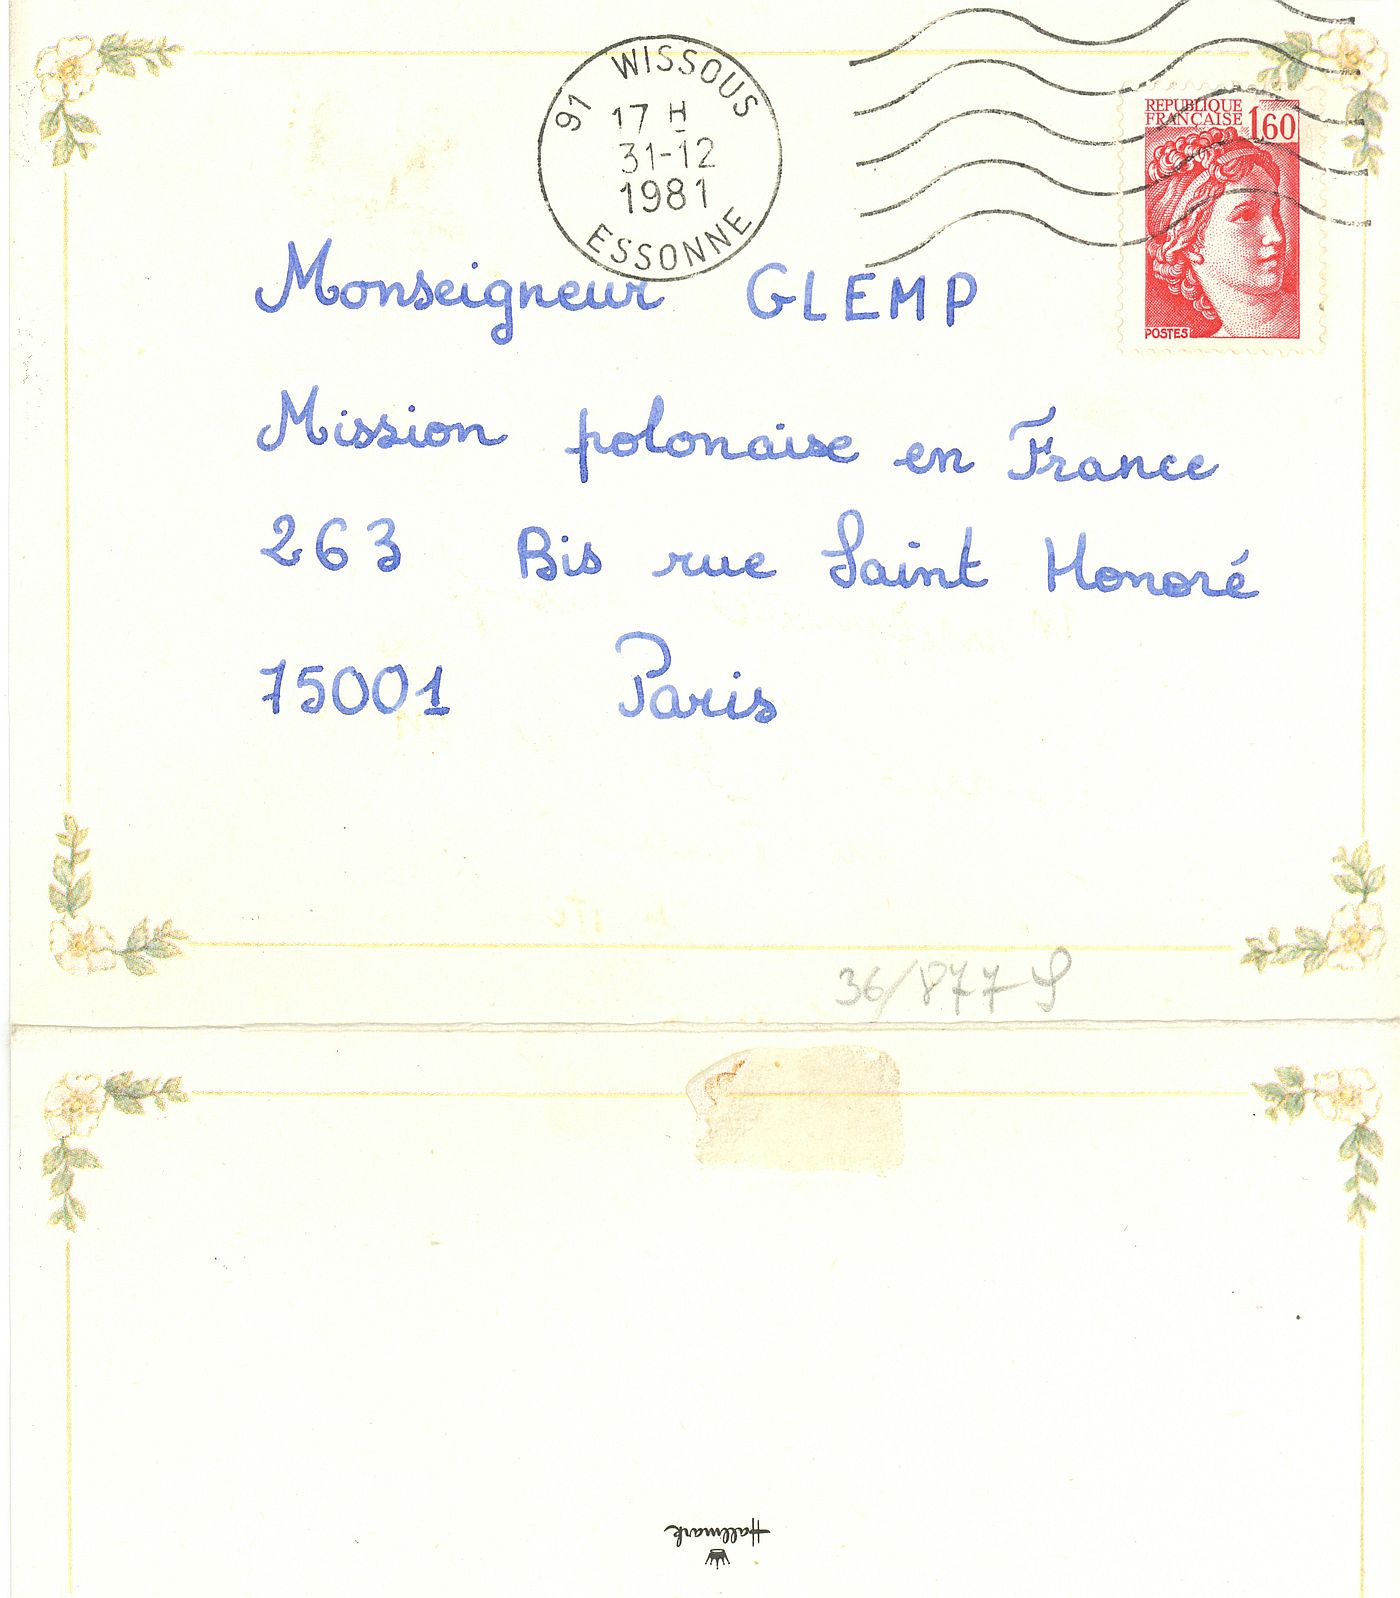 91 WISSOUS
17 H
31-12
1981
ESSONNE
REPUBLIQUE
FRANÇAISE 1,60
POSTES
Monseigneur GLEMP
Mission polonaise en France
263 Bis rue Saint Honoré
75001 Paris
36/877 S
Hallmark